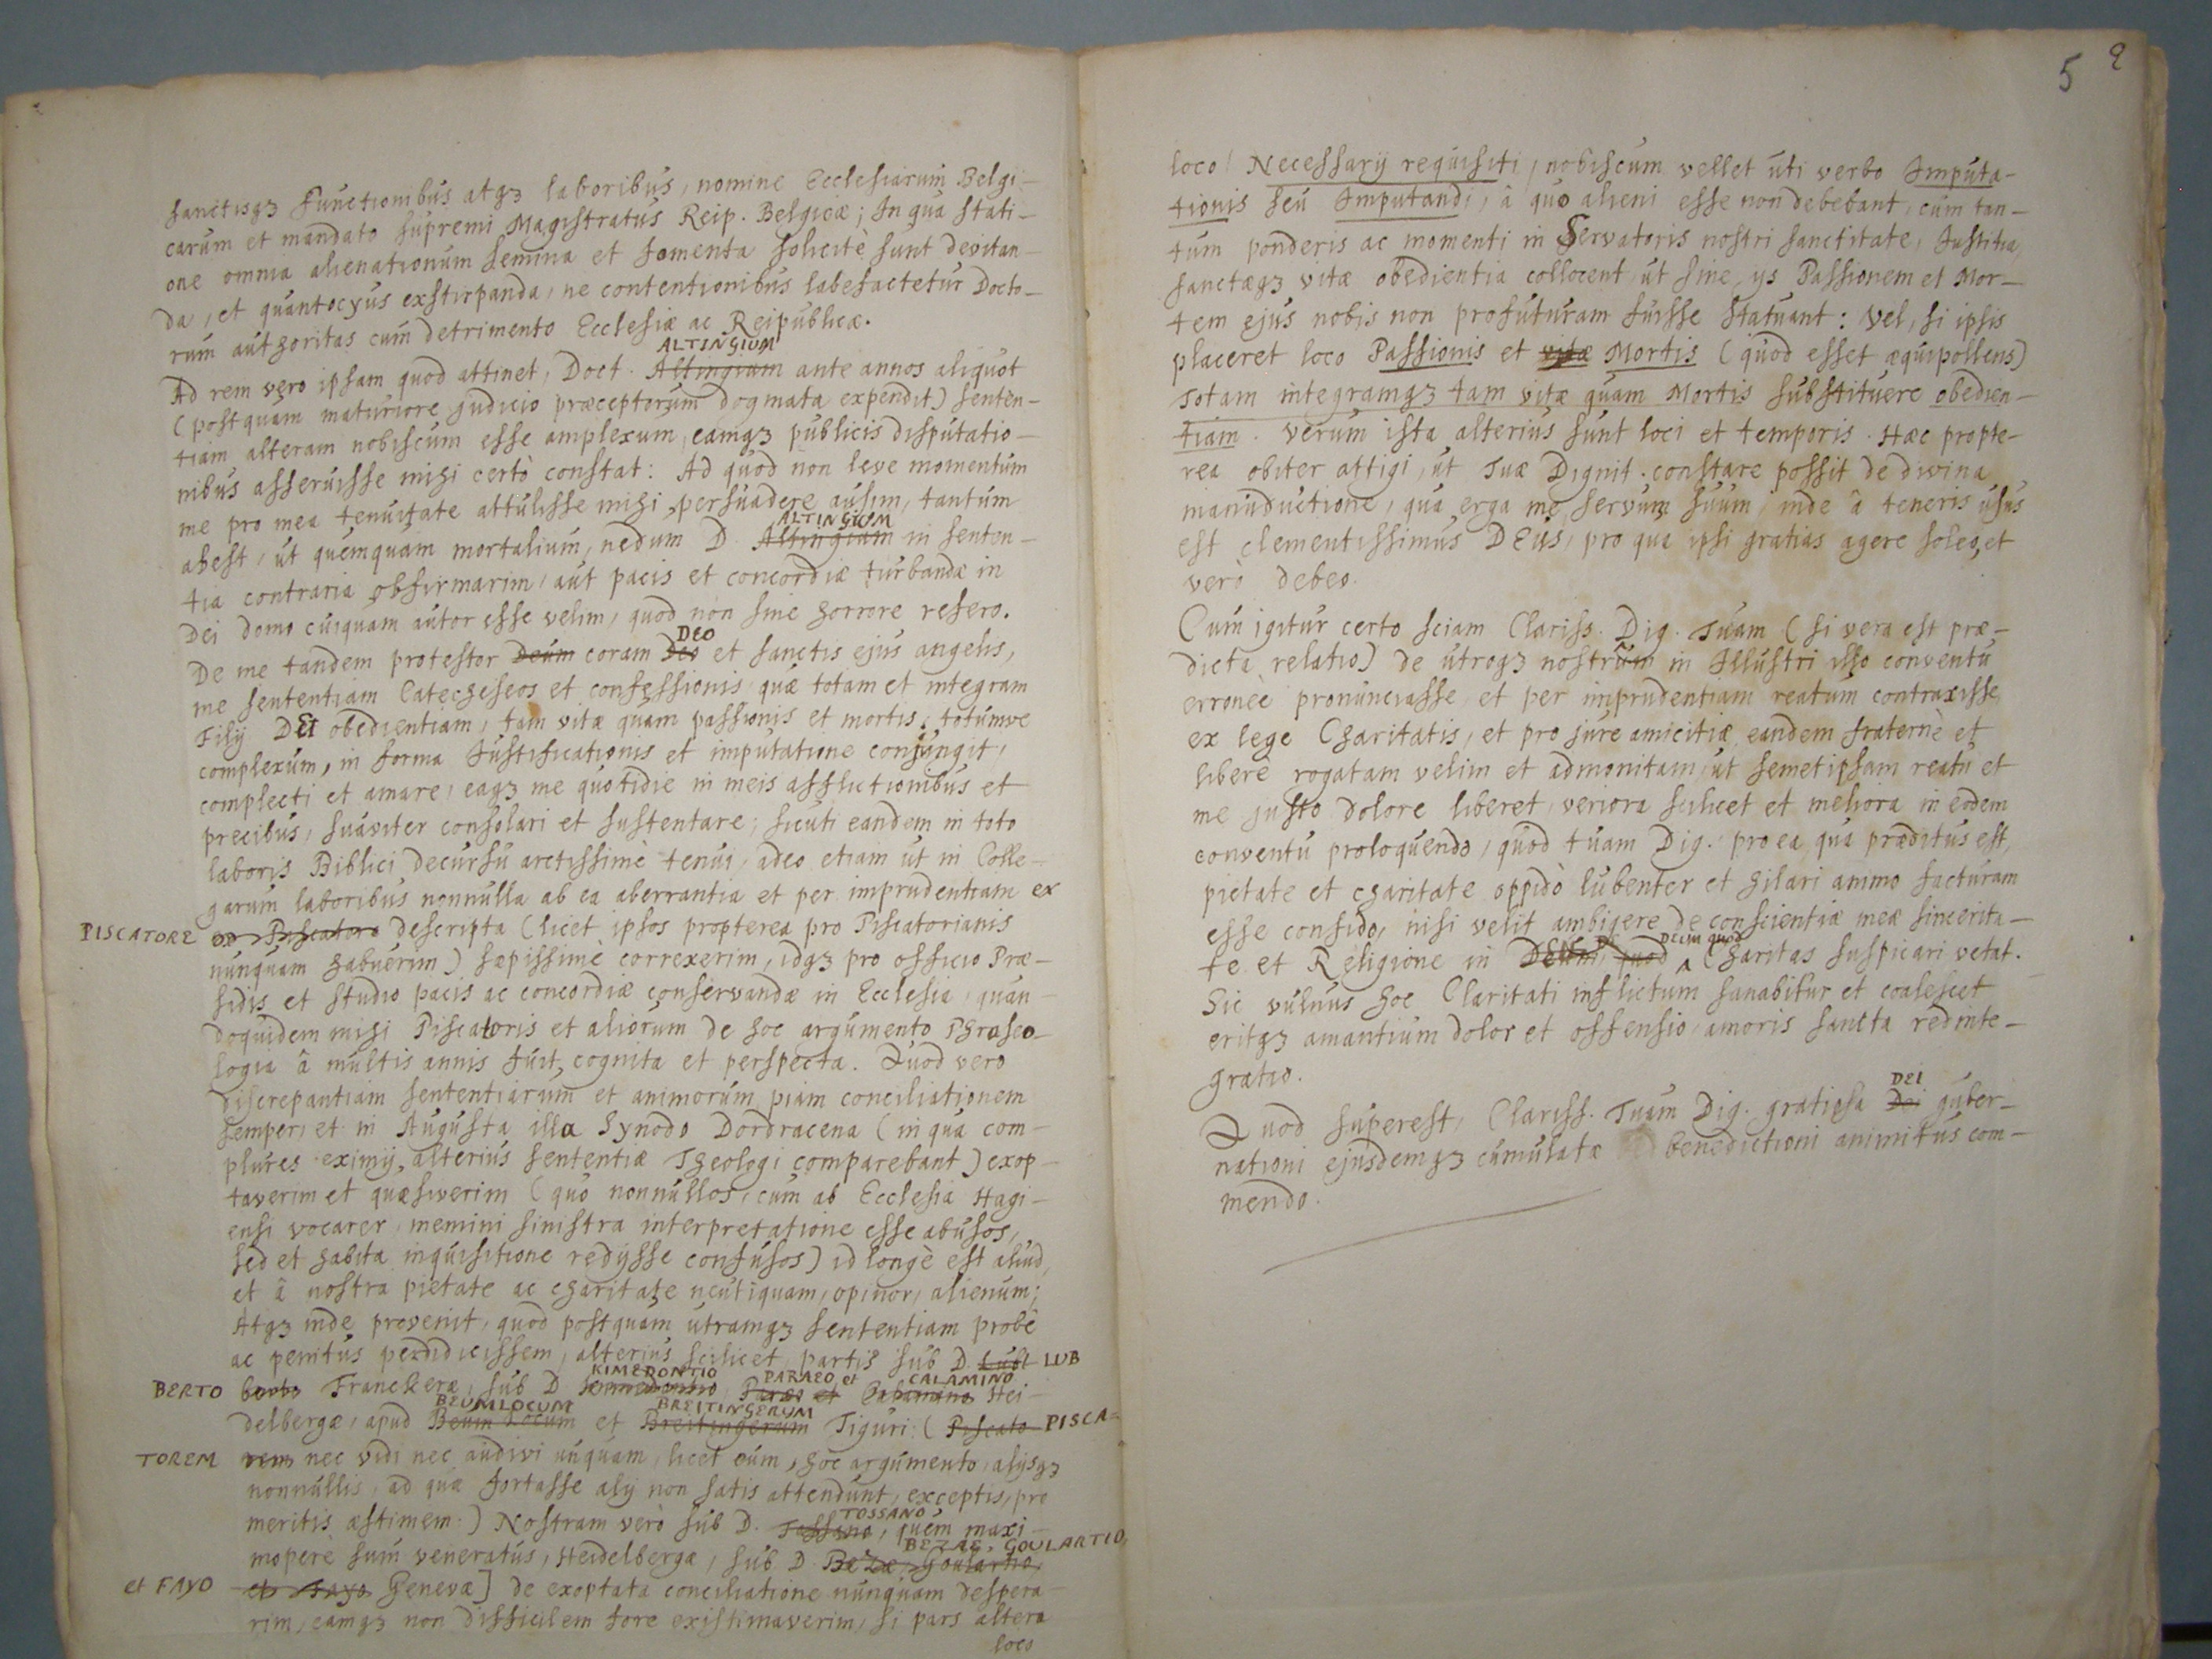 sanctisq3 functionibus atq3 laboribus, nomine Ecclesiarum Belgi-
carum et mandato supremi Magistratus Reip. Belgicæ; In qua stati-
one omnia alienationum semina et fomenta solicitè sunt devitan-
da, et quantocyus exstirpanda, ne contentionibus labefactetur Docto-
rum authoritas cum detrimento Ecclesiæ ac Reipublicæ.
ALTINGIUM
Ad rem vero ipsam quod attinet, Doct. Altingium ante annos aliquot
(postquam maturiore judicio præceptorum dogmata expendit) senten-
tiam alteram nobiscum esse amplexum, eamq3 publicis disputatio-
nibus asseruisse mihi certò constat: Ad quod non leve momentum
me pro mea tenuitate attulisse mihi persuadere ausim, tantum
ALTINGIUM
abest, ut quemquam mortalium, nedum D. Altingium in senten-
tia contraria obfirmarim, aut pacis et concordiæ turbandæ in
Dei domo cuiquam autor esse velim, quod non sine horrore refero.
DEO
De me tandem protestor Deum coram Deo et sanctis ejus angelis,
me sententiam Catecheseos et confessionis quæ totam et integram
Filij DEI obedientiam, tam vitæ quam passionis et mortis, totumve
complexum, in forma Justificationis et imputatione conjungit,
complecti et amare, eaq3 me quotidie in meis afflictionibus et
precibus, suaviter consolari et sustentare; sicuti eandem in toto
laboris Biblici decursu arctissimè tenui, adeo etiam ut in Colle-
garum laboribus nonnulla ab ea aberrantia et per imprudentiam ex
PISCATORE ex Piscatore descripta (licet ipsos propterea pro Piscatorianis
nunquam habuerim) sæpissimè correxerim, idq3 pro officio Præ-
sidis et studio pacis ac concordiæ conservandæ in Ecclesia, quan-
doquidem mihi Piscatoris et aliorum de hoc argumento Phraseo-
logia â multis annis fuit cognita et perspecta. Quod vero
discrepantiam sententiarum et animorum piam conciliationem
semper, et in Augusta illa Synodo Dordracena (in qua com-
plures eximij alterius sententiæ Theologi comparebant) exop-
taverim et quæsiverim (quo nonnullos, cum ab Ecclesia Hagi-
ensi vocarer, memini sinistra interpretatione esse abusos,
sed et habita inquisitione redijsse confusos) id longè est aliud,
et â nostra pietate ac charitate neutiquam, opinor, alienum;
Atq3 inde provenit, quod postquam utramq3 sententiam probè
ac penitus perdidicissem, alterius scilicet partis sub D. Lub- LUB
KIMEDONTIO PARAEO et CALAMINO
BERTO berto Franckeræ, sub D. Kimedontio, Paræo et Calamino Hei-
BEUMLOCUM BREITINGERUM
delbergæ, apud Beumlocum et Breitingerum Tiguri: (Piscato- PISCA-
TOREM rem nec vidi nec audivi unquam, licet eum, hoc argumento, alijsq3
nonnullis, ad quæ fortasse alij non satis attendunt, exceptis, pro
TOSSANO
meritis æstimem.) Nostram verò sub D. Tossano, quem maxi-
BEZAE, GOULARTIO,
mopere sum veneratus, Heidelbergæ, sub D. Bezæ, Goulartio,
et FAYO et Fayo Genevæ] de exoptata conciliatione nunquam despera-
rim, eamq3 non difficilem fore existimaverim, si pars altera
loco
5 2
loco Necessarij requisiti, nobiscum vellet uti verbo Imputa-
tionis seu Imputandi, â quo alieni esse non debebant, cum tan-
tum ponderis ac momenti in Servatoris nostri sanctitate, Justitia,
sanctæq3 vitæ obedientia collocent, ut sine ijs Passionem et Mor-
tem ejus nobis non profuturam fuisse statuant: Vel, si ipsis
placeret loco Passionis et vitæ Mortis (quod esset æquipollens)
Totam integramq3 tam vitæ quam Mortis substituere obedien-
tiam. Verum ista alterius sunt loci et temporis. Hæc propte-
rea obiter attigi, ut Tuæ Dignit. constare possit de divina
manuductione, qua erga me servum suum, inde â teneris usus
est clementissimus DEus, pro qua ipsi gratias agere soleo, et
verò debeo.
Cum igitur certo sciam Clariss. Dig. Tuam (si vera est præ-
dicta relatio) de utroq3 nostrûm in Illustri illo conventu
erroneè pronunciasse, et per imprudentiam reatum contraxisse
ex lege Charitatis, et pro jure amicitiæ, eandem fraternè et
liberè rogatam velim et admonitam, ut semetipsam reatu et
me justo dolore liberet, veriora scilicet et meliora in eodem
conventu proloquendo, quod tuam Dig. pro ea, qua præditus est,
pietate et charitate oppidò lubenter et hilari animo facturam
esse confido, nisi velit ambigere de conscientiæ meæ sincerita-
DEum quod
te et Religione in Deum, quod Charitas suspicari vetat.
Sic vulnus hoc Claritati inflictum sanabitur et coalescet
eritq3 amantium dolor et offensio, amoris sancta redinte-
gratio.
DEI
Quod superest, Clariss. Tuam Dig. gratiosa Dei guber-
nationi ejusdemq3 cumulatæ benedictioni animitus com-
mendo.